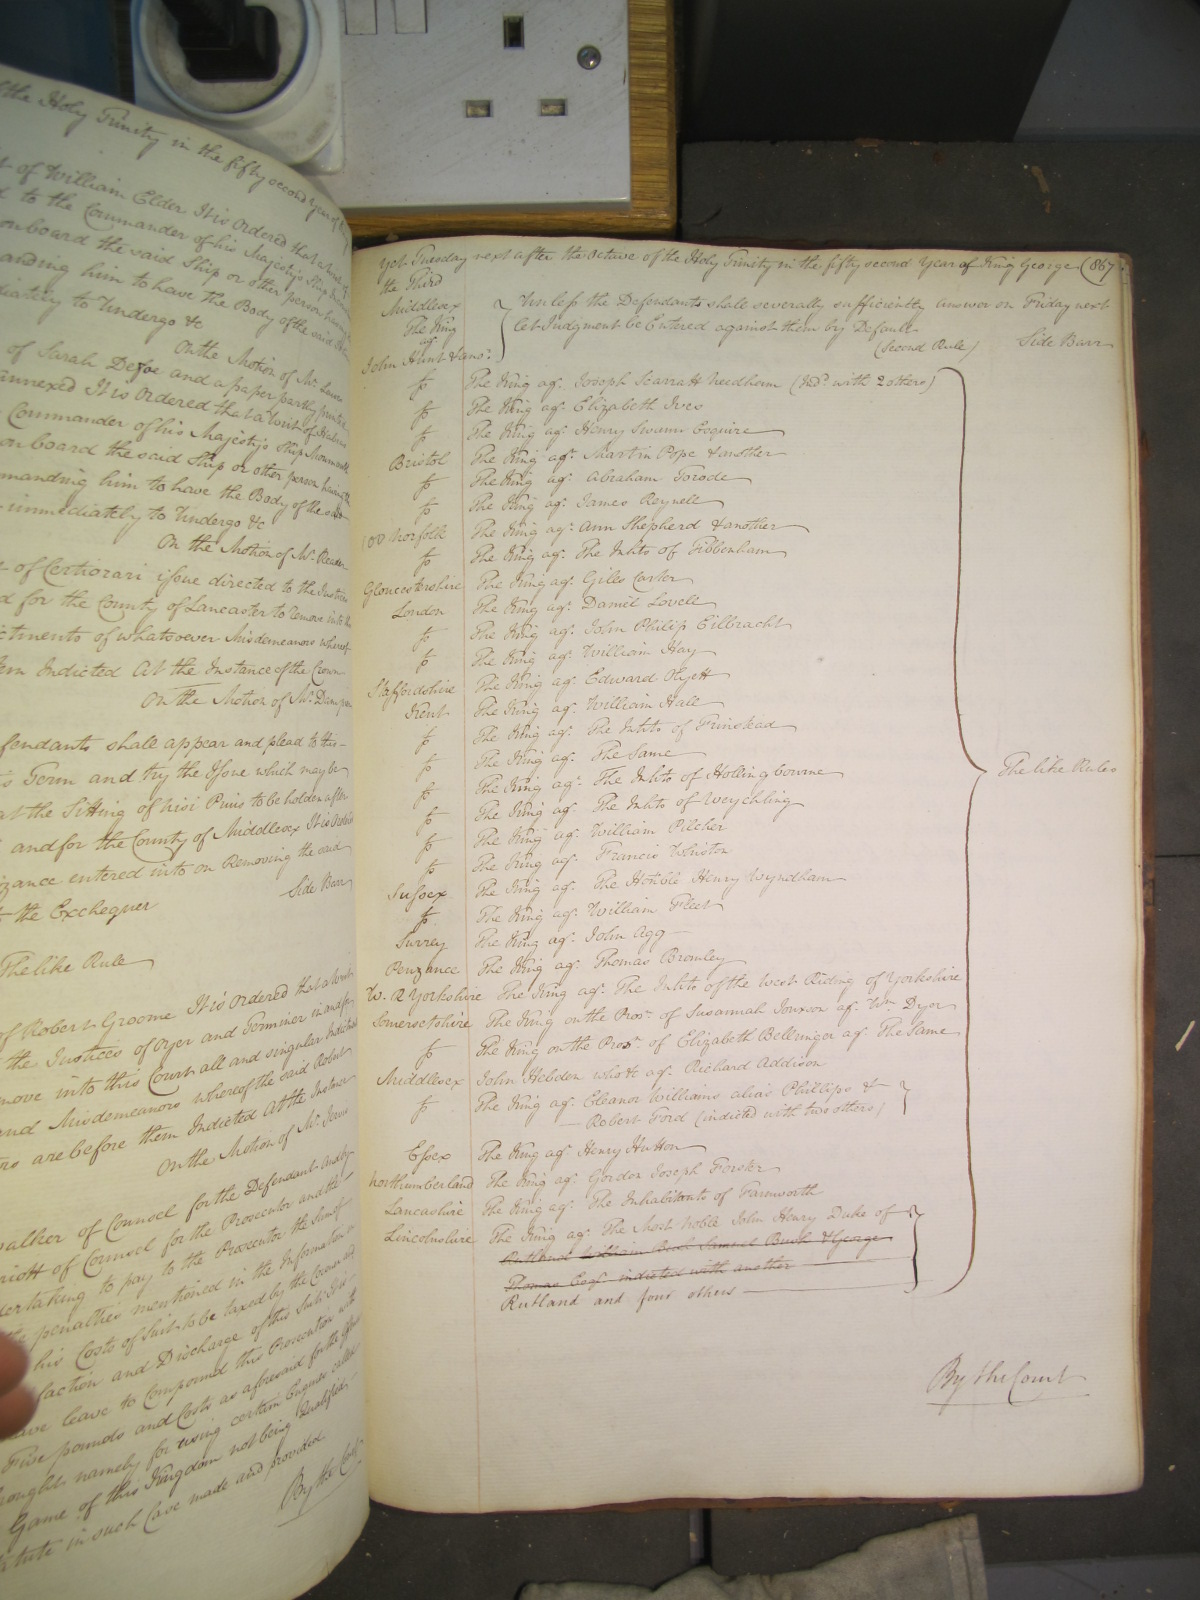 the Holy Trinity in the fifty second Year of
of William Elder It is Ordered that a Writ of
to the Commander of his Majestys Ship
onboard the said Ship or other person having
manding him to have the Body of the said
diately to Undergo &c
On the Motion of Mr. Lawes
of Sarah Defoe and a paper partly printed
annexed It is Ordered that a Writ of Habeas
Commander of his Majestys Ship Monmouth
on board the said Ship or other person having the
manding him to have the Body of the said
immediately to Undergo &c
On the Motion of Mr. Reader
of Certiorari issue directed to the Justices
d for the County of Lancaster to remove into the
ctments of whatsoever Misdemeanors whereof
tem Indicted At the Instance of the Crown
On the Motion of Mr. Dampier
fendants shall appear and plead to this
s Term and try the Issue which may be
at the Sitting of Nisi Prius to be holden after
and for the County of Middlesex It is Ordered
izance entered into on Removing the said
Side Barr
the Exchequer
The like Rule
of Robert Groome It is Ordered that a Writ
the Justices of Oyer and Terminer in and for
move into this Court all and singular Indictments
and Misdemeanors whereof the said Robert
ers are before them Indicted At the Instance
On the Motion of Mr. Jervis
walker of Counsel for the Defendant and by
riott of Counsel for the Prosecutor and the
dertaking to pay to the Prosecutor the Sum of
the penalties mentioned in the Information
his Costs of Suit to be taxed by the Coroner and
faction and Discharge of this Suit
have leave to Compound this Prosecution with
Five pounds and Costs as aforesaid for the Offence
brought namely for using certain Engines called
Game of this Kingdom not being Qualified
tatute in such Case made and provided
By the Court
Yet Tuesday next after the Octave of the Holy Trinity in the fifty second Year of King George (867
the Third
Middlesex
The King
agt.
John Hunt & anor.
Unless the Defendants shall severally sufficiently answer on Friday next
let Judgment be Entered against them by Default
(Second Rule) Side Barr
The King agt. Joseph Scarratt Needham (Indd. with 2 others)
The King agt. Elizabeth Ives
The King agt. Henry Swann Esquire
Bristol The King agt. Martin Pope & another
The King agt. Abraham Torode
The King agt. James Reynell
Norfolk The King agt. Ann Shepherd & another
The King agt. The Inhts of Tibbenham
Gloucestershire The King agt. Giles Carter
London The King agt. Daniel Lovell
The King agt. John Philip Eilbracht
The King agt. William Hay
Staffordshire The King agt. Edward Olyett
Kent The King agt. William Hall
The King agt. The Inhts of Frinstead
The King agt. The Same
The King agt. The Inhts of Hollingbourne
The King agt. The Inhts of Weychling
The King agt. William Pilcher
The King agt. Francis Whiston
Sussex The King agt. The Honble Henry Wyndham
The King agt. William Fleet
Surrey The King agt. John Agg
Penzance The King agt. Thomas Bromley
W. R Yorkshire The King agt. The Inhts of the West Riding of Yorkshire
Somersetshire The King on the Prosn. of Susannah agt. Wm. Dyer
The King on the Prosn. of Elizabeth Bellinger agt. The Same
Middlesex John Hebden who &c agt. Richard Addison
The King agt. Eleanor Williams alias Phillips &
Robert Ford (indicted with two others)
Essex The King agt. Henry Hutton
Northumberland The King agt. Gordon Joseph Forster
Lancashire The King agt. The Inhabitants of Farnworth
Lincolnshire The King agt. The Most Noble John Henry Duke of
Rutland William Bush Samuel Bush & George
Thomas Esqr. indicted with another
Rutland and four others
The like Rules
By the Court